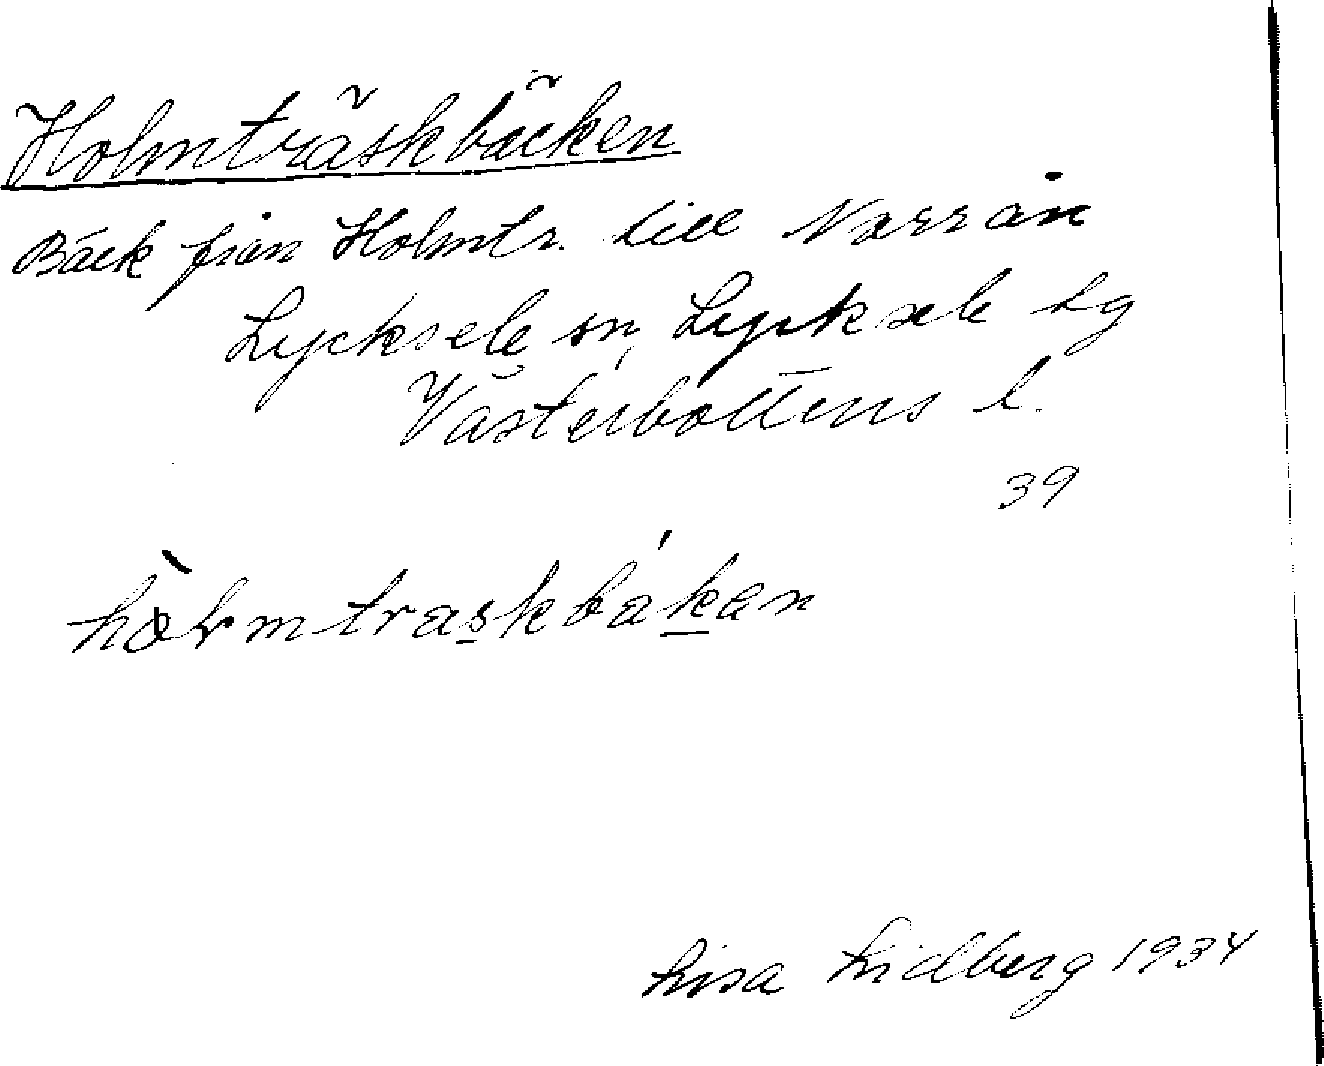 Holmträskbäcken
Bäck från Holmtr. till Norrån
Lycksele sn, Lycksele lg
Västerbottens l.
39
Lisa Lidberg 1934